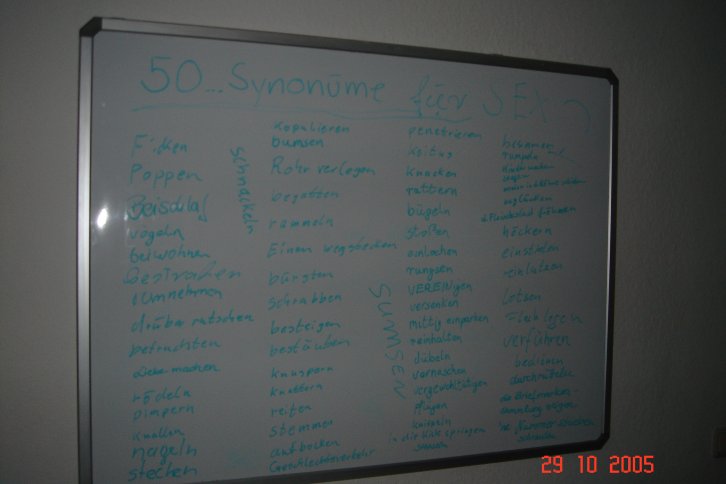 50... Synonüme für SEX
Ficken
Poppen
Beischlaf
vögeln
beiwohnen
Bestrahen
übernehmen
drüber rutschen
befruchten
Liebe machen
rödeln
pimpern
Knallen
nageln
stechen
schnackeln
kopulieren
bumsen
Rohr verlegen
begatten
rammeln
Einen wegstecken
bürsten
schrabben
besteigen
bestäuben
knuspern
knattern
reiten
stemmen
aufbocken
Geschlechtsverkehr
SUMMSEN
penetrieren
Koitus
knacken
rattern
bügeln
stoßen
einlochen
VEREINigen
versenken
mittig einparken
reinhalten
dübeln
vernaschen
vergewohltätigen
pflügen
in die Kiste springen
höckern
einstielen
Lotsen
Flach legen
verführen
bedienen
die Briefmarken
sammlung zeigen
'ne Nummer schieben
29 10 2005